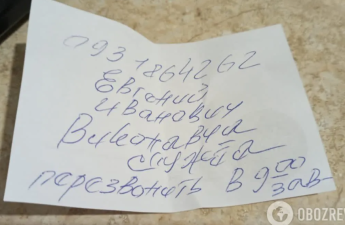 0937864262
Евгений
Иванович
Виконавча
служба
перезвонить в 9 00
зав-
OBOZREV